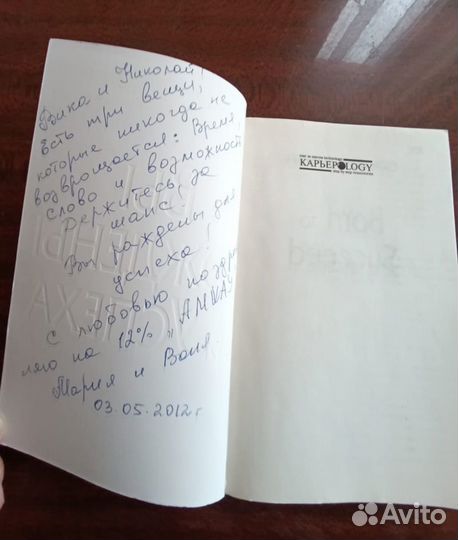 Вика и Николай!
Есть три вещи,
которые никогда не
возвращается: Время
слово и возможность
Держитесь за
шанс.
Вы раждены для
успеха!
С любовью поздр
ляю на 12% „AMWAY"
Мария и Ваня.
03.05.2012 г
КАРЬЕРOLOGY
Born to
Succeed
Avito